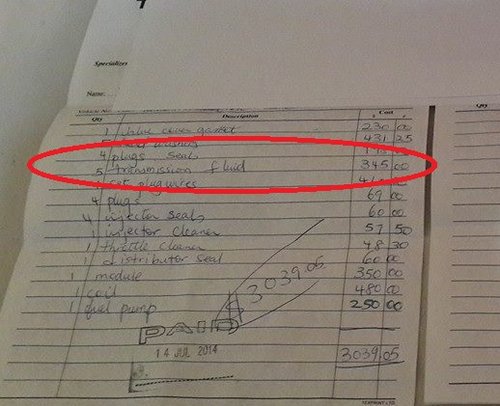 Specializes
Name:
Qty Description Cost
1 valve cover gasket 230 00
431 25
4 plugs seals
5 transmission fluid 345 00
plug wires
4 plugs 69 00
4 injector seals 60 00
1 injector cleaner 57 50
1 throttle cleaner 48 30
1 distributor seal 60 00
1 module 350 00
1 coil 480 00
1 fuel pump 250 00
$3039.05
PAID
14 JUL 2014
3039.05
Qty